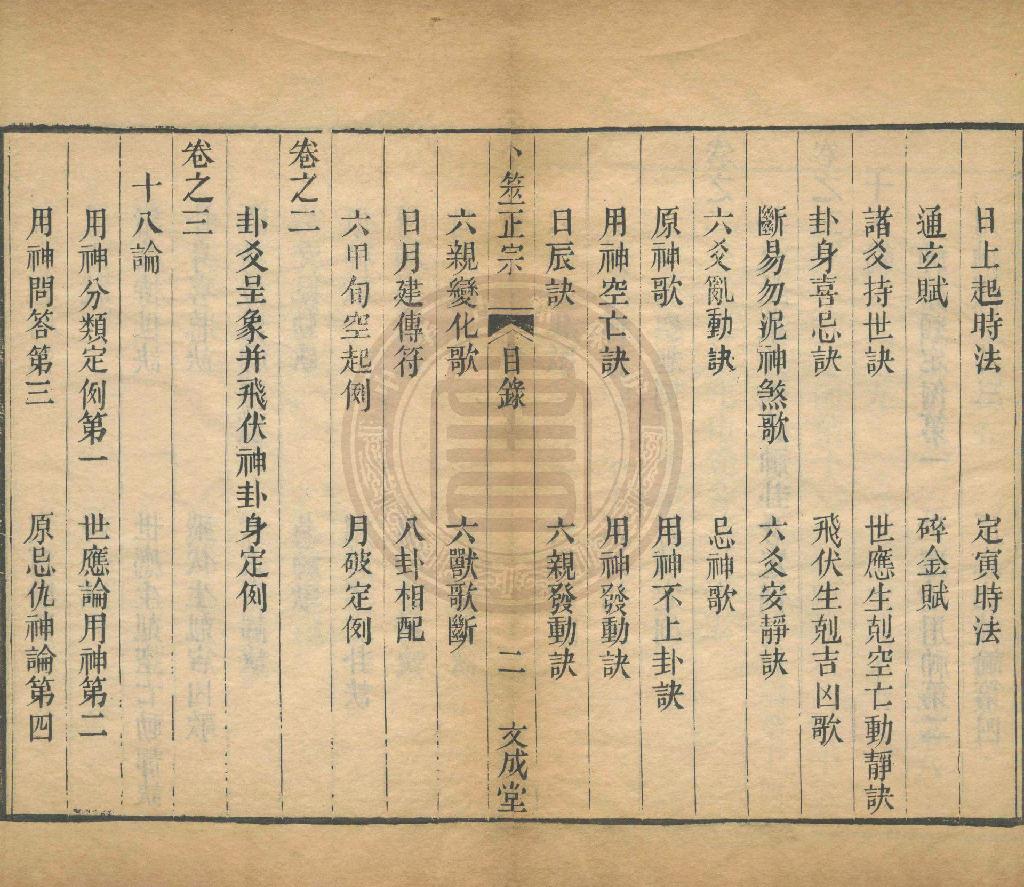 日上起時法　定寅時法
通玄賦　碎金賦
諸爻持世訣　世應生剋空亡動靜訣
卦身喜忌訣　飛伏生剋吉凶歌
斷易勿泥神煞歌　六爻安靜訣
六爻亂動訣　忌神歌
原神歌　用神不上卦訣
用神空亡訣　用神發動訣
日辰訣　六親發動訣
卜筮正宗　目錄　二　文成堂
六親變化歌　六獸歌斷
日月建傳符　八卦相配
六甲旬空起例　月破定例
卷之二
卦爻呈象并飛伏神卦身定例
卷之三
十八論
用神分類定例第一　世應論用神第二
用神問答第三　原忌仇神論第四